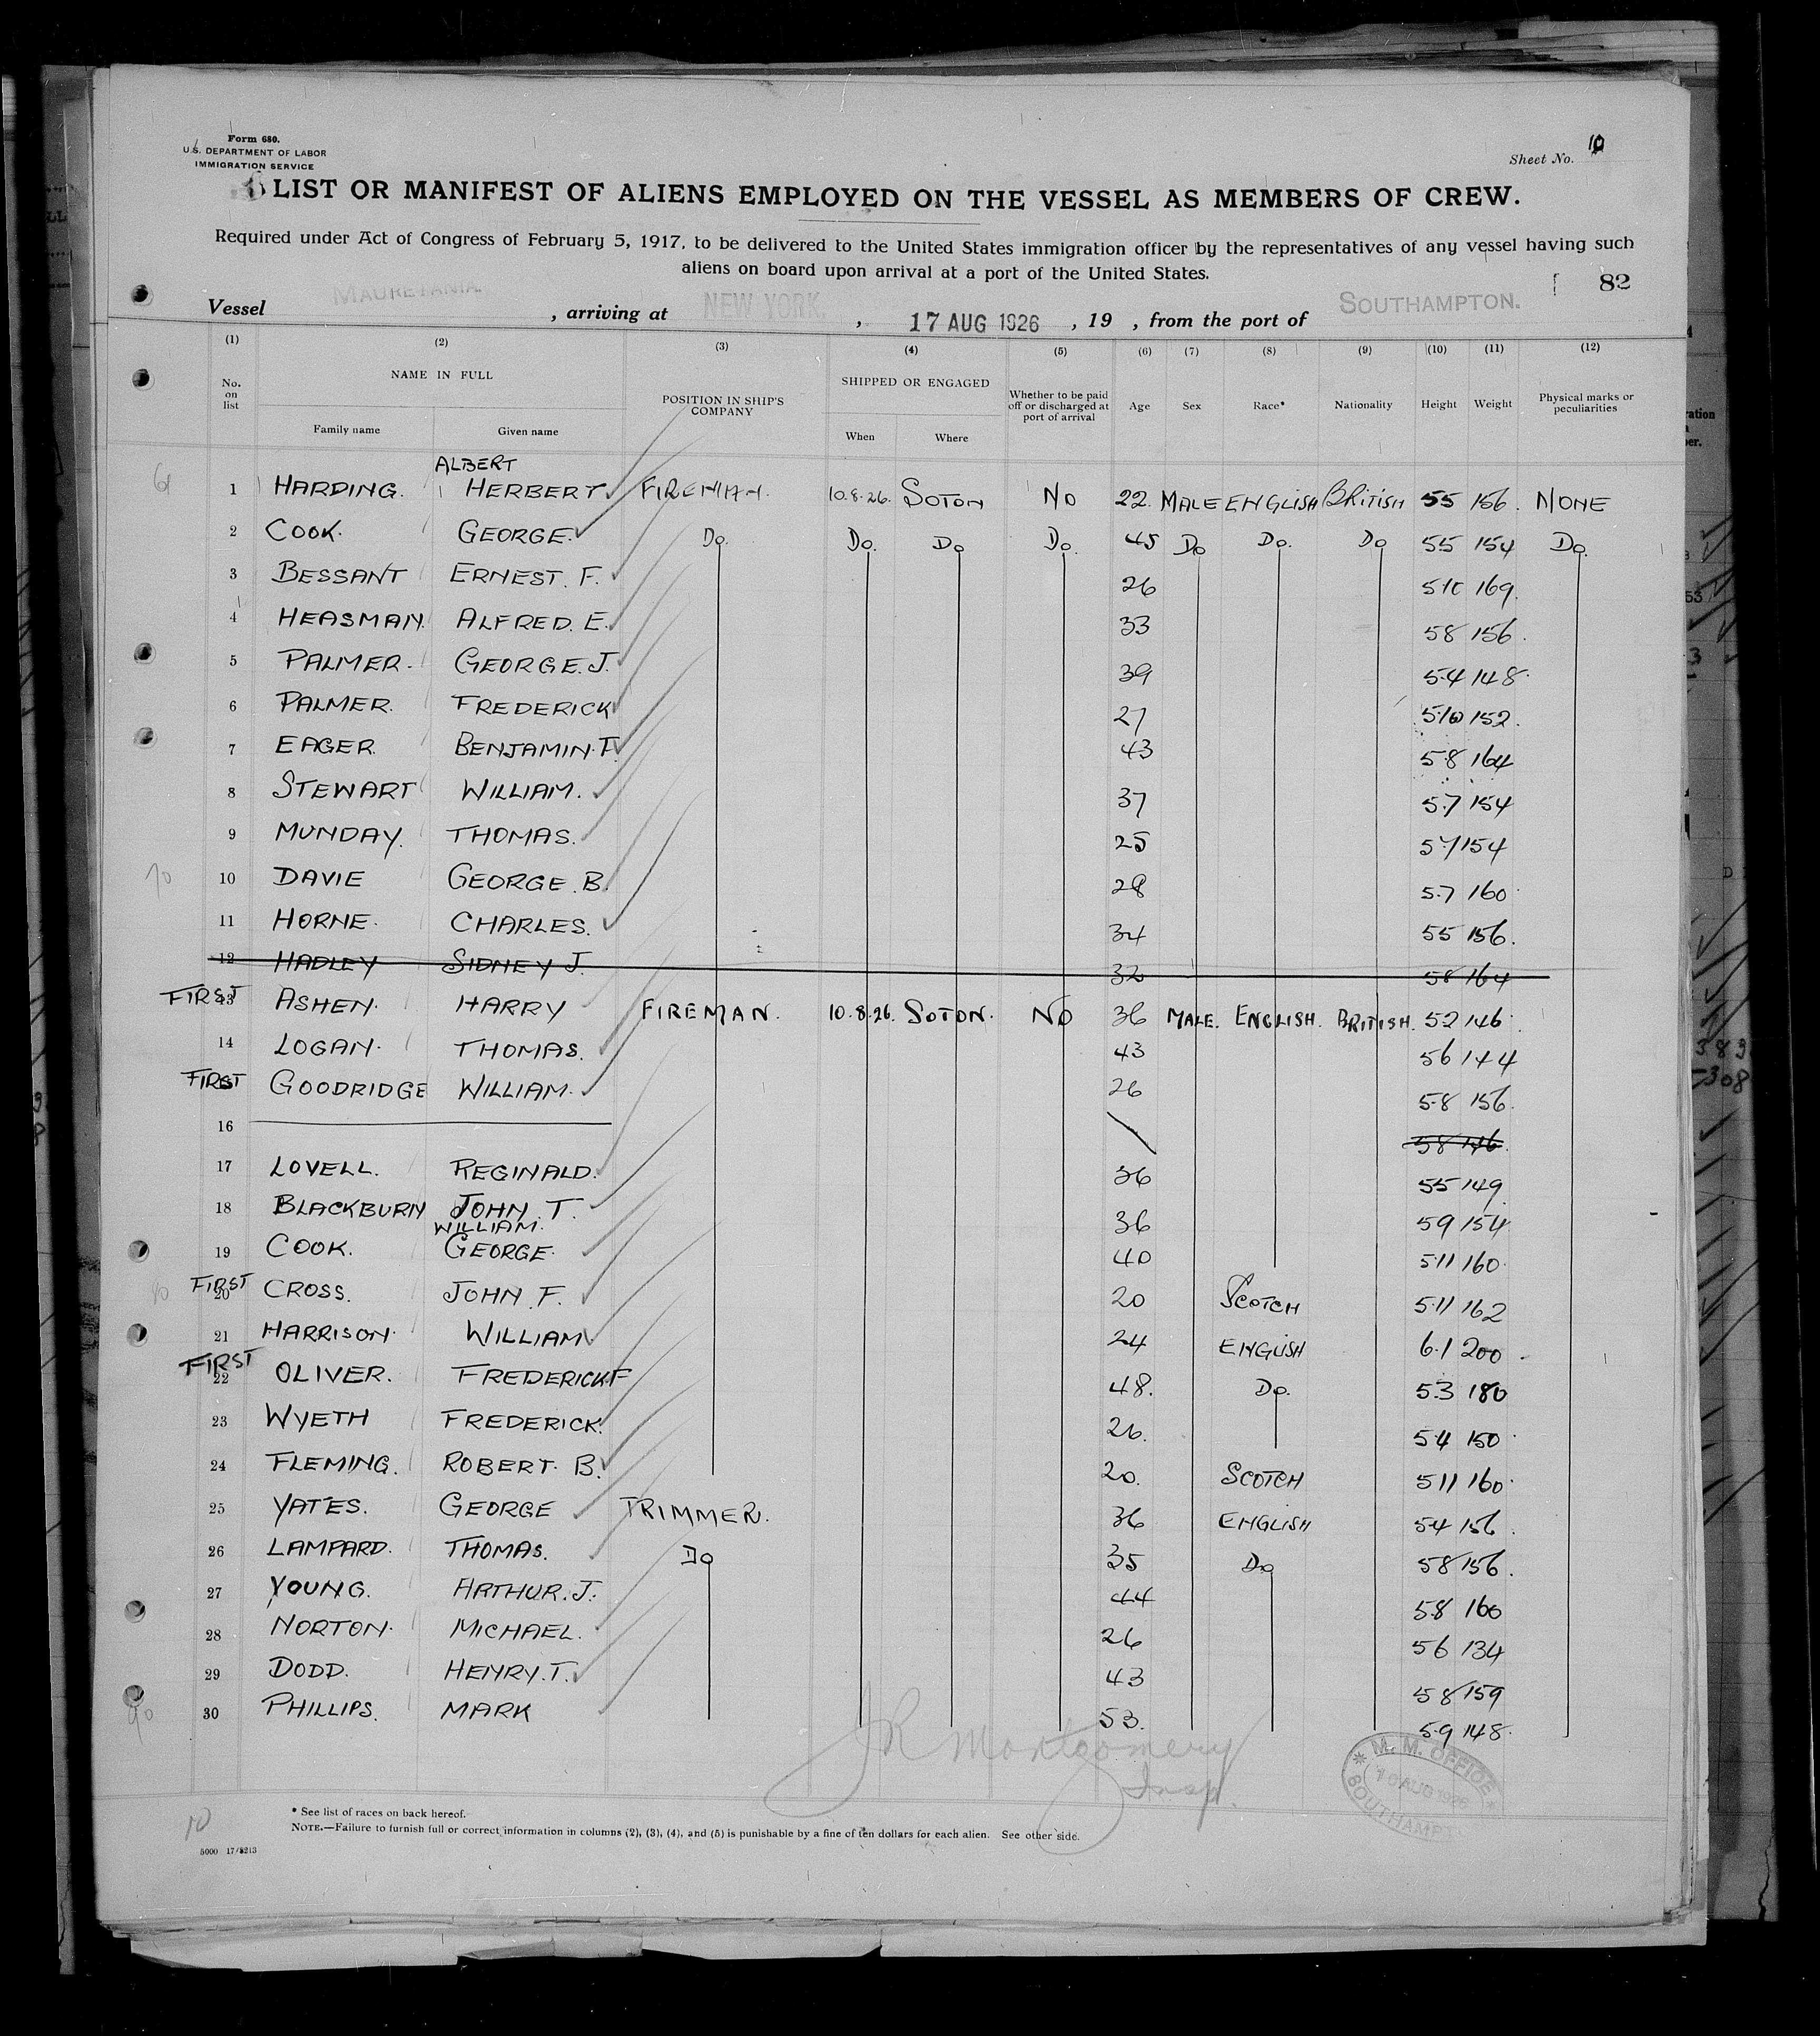 Form 680.
U.S. DEPARTMENT OF LABOR
IMMIGRATION SERVICE
Sheet No. 10
LIST OR MANIFEST OF ALIENS EMPLOYED ON THE VESSEL AS MEMBERS OF CREW.
Required under Act of Congress of February 5, 1917, to be delivered to the United States immigration officer by the representatives of any vessel having such
aliens on board upon arrival at a port of the United States.
82
Vessel MAURETANIA. , arriving at NEW YORK. , 17 AUG 1926 , 19 , from the port of SOUTHAMPTON.
(1) (2) (3) (4) (5) (6) (7) (8) (9) (10) (11) (12)
No. on list NAME IN FULL Family name Given name POSITION IN SHIP'S COMPANY SHIPPED OR ENGAGED When Where Whether to be paid off or discharged at port of arrival Age Sex Race* Nationality Height Weight Physical marks or peculiarities
ALBERT
61 1 HARDING. HERBERT. FIREMAN. 10.8.26. SOTON NO 22. MALE ENGLISH BRITISH 55 156. NONE
2 COOK. GEORGE. Do. Do. Do Do. 45 Do Do. Do 55 154 Do.
3 BESSANT ERNEST. F. 26 5.10 169.
4 HEASMAN. ALFRED. E. 33 58 156.
5 PALMER. GEORGE. J. 39 5.4 148.
6 PALMER. FREDERICK 27 5.10 152.
7 EAGER. BENJAMIN. F. 43 5.8 164
8 STEWART WILLIAM. 37 5.7 154
9 MUNDAY. THOMAS. 25 5.7 154
70 10 DAVIE GEORGE. B. 28 5.7 160
11 HORNE. CHARLES. 34 55 156.
12 HADLEY SIDNEY J. 32 58 164
FIRST 13 ASHEN. HARRY FIREMAN. 10.8.26. SOTON. NO 36 MALE. ENGLISH. BRITISH. 52 146.
14 LOGAN. THOMAS. 43 56 144
FIRST GOODRIDGE WILLIAM. 26 5.8 156.
16 58 146.
17 LOVELL. REGINALD. 36 55 149
18 BLACKBURN JOHN. T. 36 59 154
WILLIAM.
19 COOK. GEORGE. 40 511 160.
80 FIRST 20 CROSS. JOHN. F. 20 SCOTCH 5.11 162
21 HARRISON. WILLIAM 24 ENGLISH 6.1 200
FIRST 22 OLIVER. FREDERICK. F 48. Do. 5.3 180
23 WYETH FREDERICK. 26. 5.4 150.
24 FLEMING. ROBERT. B. 20. SCOTCH 511 160.
25 YATES. GEORGE TRIMMER. 36 ENGLISH 54 156.
26 LAMPARD. THOMAS. Do 35 Do 58 156.
27 YOUNG. ARTHUR. J. 44 5.8 160
28 NORTON. MICHAEL. 26 56 134
29 DODD. HENRY. T. 43 58 159
90 30 PHILLIPS. MARK 53. 5.9 148.
JR Montgomery
Insp.
* M. M. OFFICE *
10 AUG 1926
SOUTHAMPT
10
* See list of races on back hereof.
NOTE.—Failure to furnish full or correct information in columns (2), (3), (4), and (5) is punishable by a fine of ten dollars for each alien. See other side.
5000 17/8213